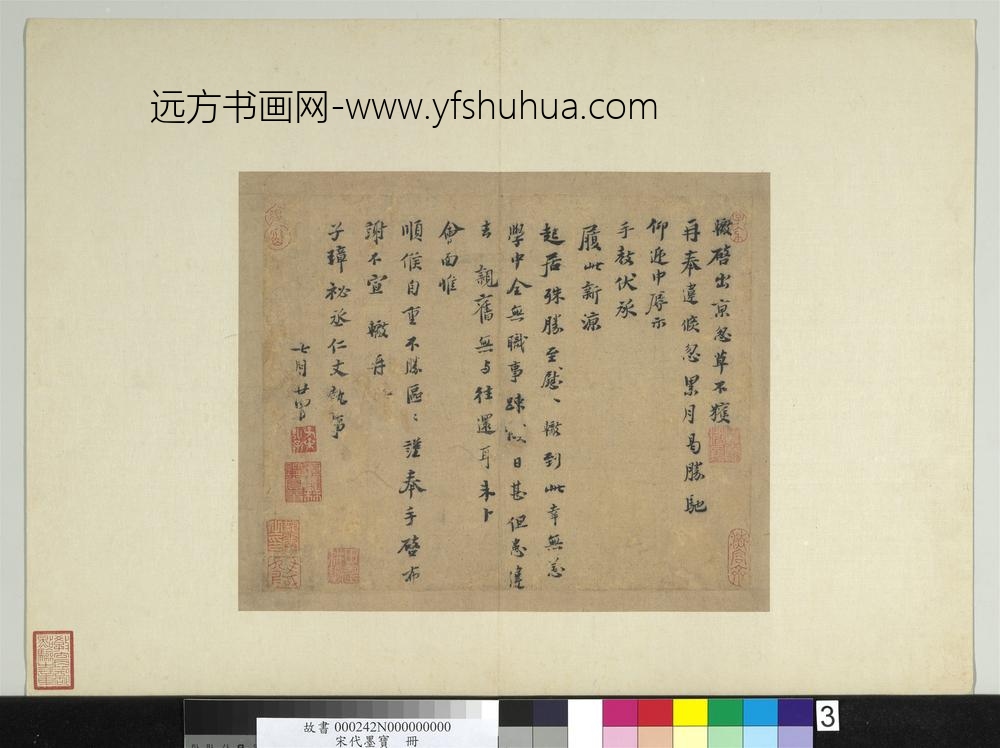 远方书画网-www.yfshuhua.com
轍啓出京怱草不獲
再奉違倐忽累月曷勝馳
仰逓中辱示
手教伏承
履此新涼
起居殊勝至慰〻轍到此幸無恙
學中全無職事踈以日甚但患違
去 親舊無与往還耳未卜
會面惟
順候自重不勝區〻謹奉手啓布
謝不宣 轍再
子璋祕丞仁丈執事
七月廿
3
故書 000242N000000000
宋代墨寶 冊